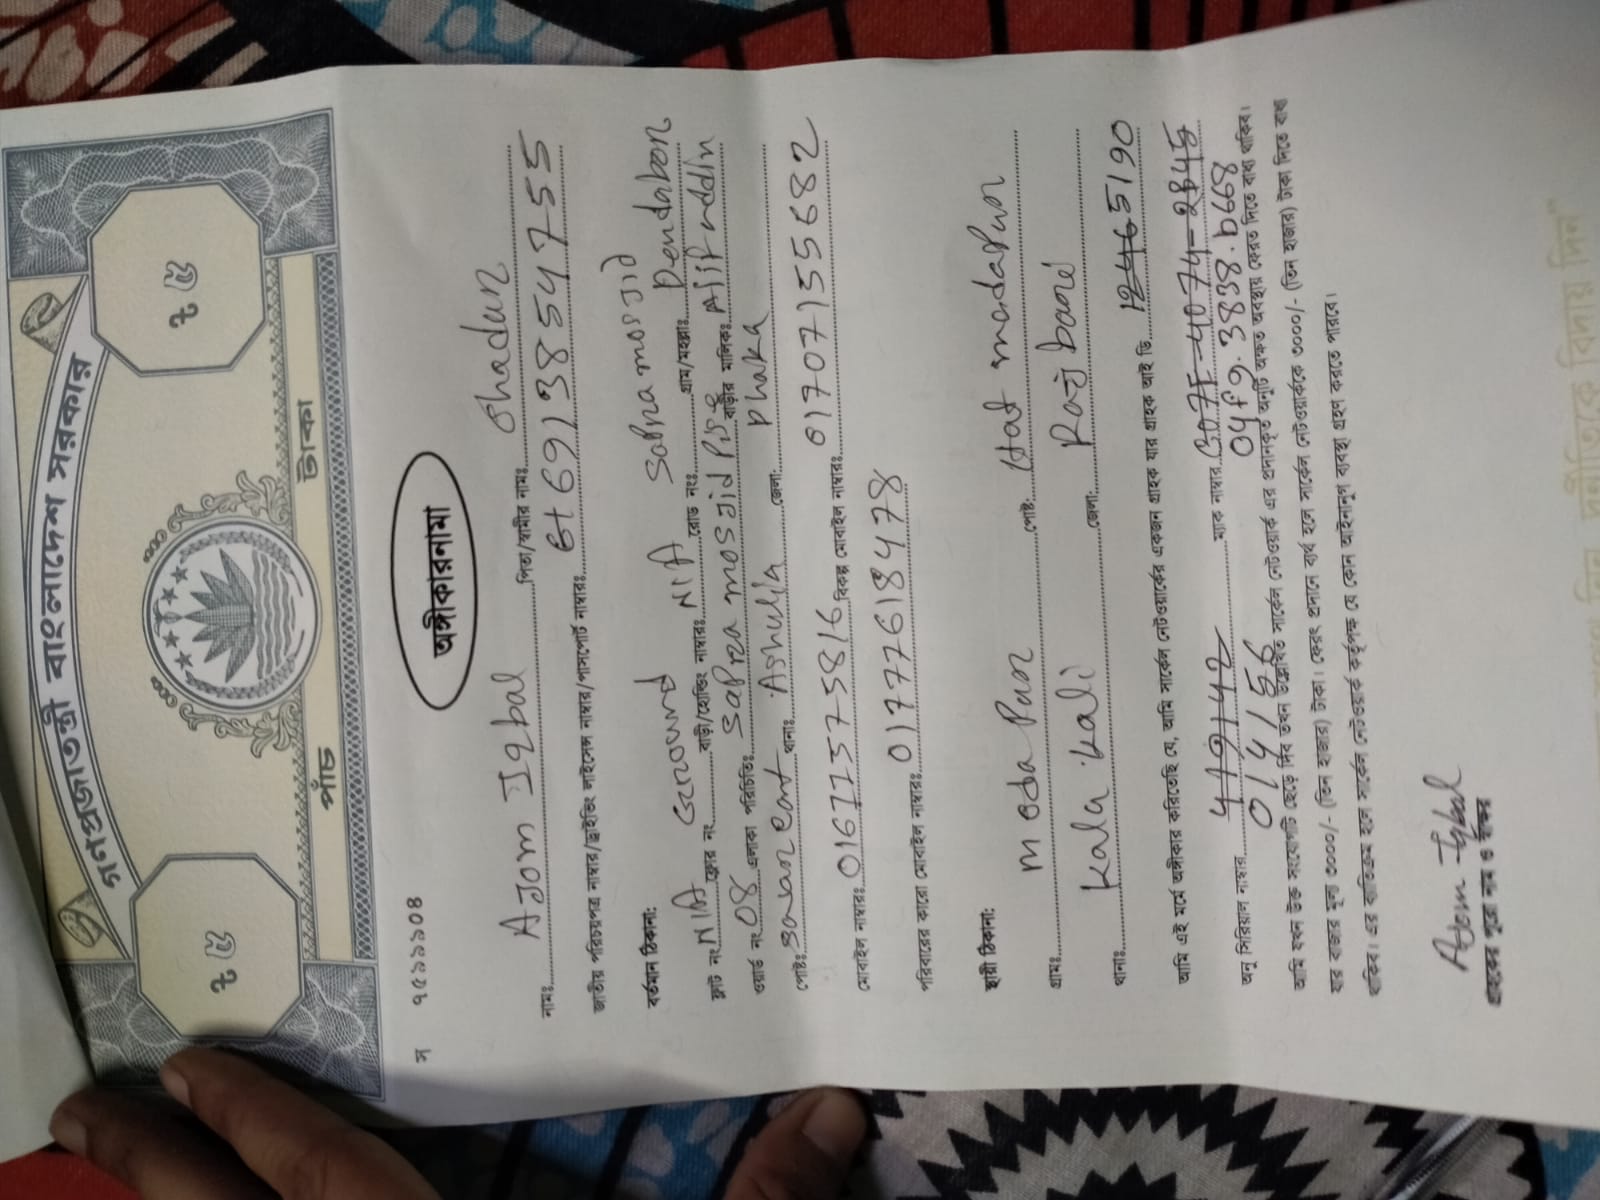 গণপ্রজাতন্ত্রী বাংলাদেশ সরকার
ট ৫
ট ৫
পাঁচ টাকা
স ৭৫১১৯০৪
অঙ্গীকারনামা
নামঃ Ajom Iqbal পিতা/স্বামীর নামঃ Shadun
জাতীয় পরিচয়পত্র নাম্বার/ড্রাইভিং লাইসেন্স নাম্বার/পাসপোর্ট নাম্বারঃ 6913854755
বর্তমান ঠিকানা:
ফ্লাট নং N/A ফ্লোর নং Ground বাড়ী/হোল্ডিং নাম্বারঃ N/A রোড নংঃ Sapra mosjid গ্রাম/মহল্লাঃ Dendabon
ওয়ার্ড নং 08 এলাকা পরিচিতিঃ Sapra mosjid বাড়ীর মালিকঃ
পোষ্টঃ থানাঃ Ashulia জেলা: Dhaka
মোবাইল নাম্বারঃ 01677575816 বিকল্প মোবাইল নাম্বারঃ 01707155682
পরিবারের কারো মোবাইল নাম্বারঃ 01777618478
স্থায়ী ঠিকানা:
গ্রামঃ modapur পোষ্ট: Hat madapur
থানাঃ kalu kali জেলা: Rajbari
আমি এই মর্মে অঙ্গীকার করিতেছি যে, আমি সার্কেল নেটওয়ার্কের একজন গ্রাহক যার গ্রাহক আই ডি 5190
অনু সিরিয়াল নাম্বার 419142 ম্যাক নাম্বার
014156 04f9.3838.b668
আমি যখন উক্ত সংযোগটি ছেড়ে দিব তখন উল্লেখিত সার্কেল নেটওয়ার্ক এর প্রদানকৃত অনুটি অক্ষত অবস্থায় ফেরত দিতে বাধ্য থাকিব।
যার বাজার মূল্য ৩০০০/- (তিন হাজার) টাকা। ফেরৎ প্রদানে ব্যর্থ হলে সার্কেল নেটওয়ার্ককে ৩০০০/- (তিন হাজার) টাকা দিতে বাধ্য
থাকিব। এর ব্যতিক্রম হলে সার্কেল নেটওয়ার্ক কর্তৃপক্ষ যে কোন আইনানুগ ব্যবস্থা গ্রহণ করতে পারবে।
Ajom Iqbal
গ্রাহকের পুরো নাম ও স্বাক্ষর
দুর্নীতিকে বিদায় দিন"